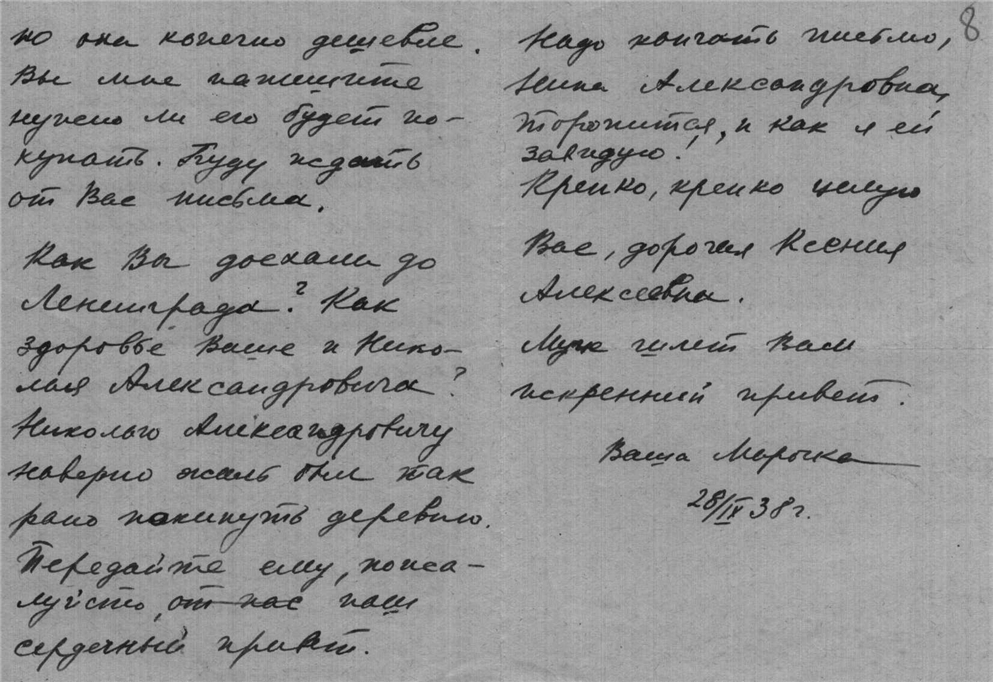 но она конечно дешевле.
Вы мне напишите
нужно ли его будет по-
купать. Буду ждать
от Вас письма.
Как Вы доехали до
Ленинграда? Как
здоровье Ваше и Нико-
лая Александровича?
Николаю Александровичу
наверно жаль был так
рано покинуть деревню.
Передайте ему, пожа-
луйсто, от нас наш
сердечный привет.
8
Надо кончать письмо,
Нина Александровна,
торопится, и как я ей
завидую!
Крепко, крепко целую
Вас, дорогая Ксения
Алексеевна.
Муж шлет Вам
искренний привет.
Ваша Марочка
28/IX 38 г.